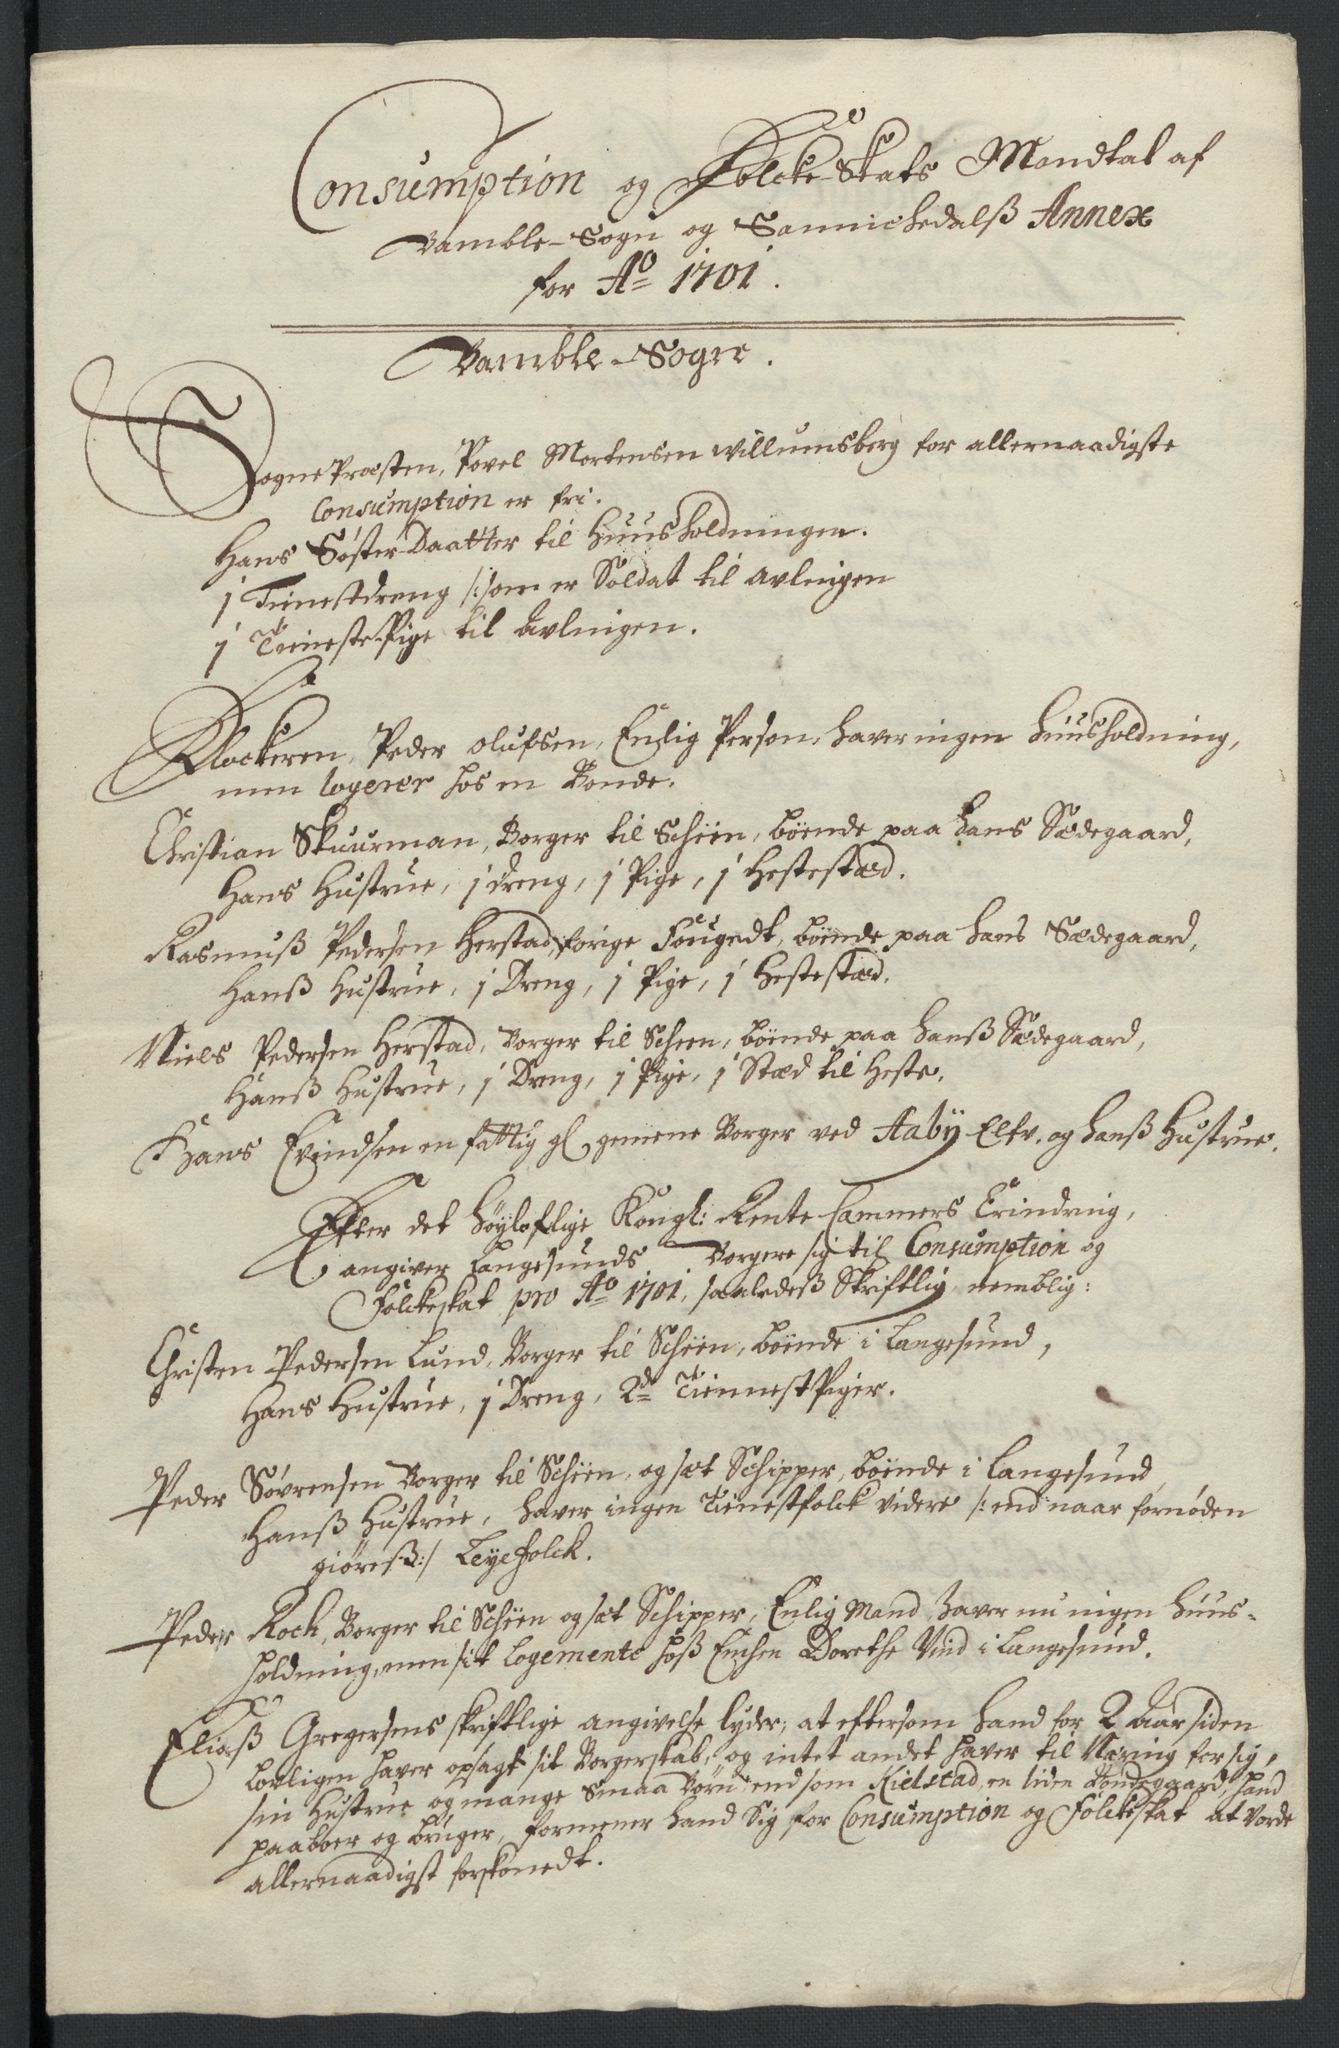 Consumption og Folcke-Skats Mandtal af
Bamble-Sogn og Sannichedalß Annex
for Ao 1701.
Bamble-Sogn.
SognePræsten, Povel Mortensen Willumsberg for allernaadigste
Consumption er fri.
Hans Søster-Daatter til Huusholdningen.
1 Tienestdreng /: som er Soldat til avlingen
1 TienestePige til Avlingen.
Klockeren, Peder Olufsen, Enlig Person, haver ingen Huusholdning,
men logerer hos en Bonde.
Christian Skuurman, Borger til Schien, boende paa hans Sædegaard,
Hans Hustrue, 1 dreng, 1 Pige, 1 Hestestæd.
Rasmuß Pedersen Herstad, forige Fougedt, boende paa hans Sædegaard,
Hanß Hustrue, 1 Dreng, 1 Pige, 1 Hestestæd.
Niels Pedersen Herstad, Borger til Scheen, boende paa hanß Sædegaard,
Hanß Hustrue, 1 Dreng, 1 Pige, 1 Stæd til Heste.
Hans Evindsen en fattig gl gemene Borger ved Aaby Elfv, og hanß Hustrue.
Efter det höyloflige Kongl: Rente Cammers Erindring,
angiver Langesunds Borgere sig til Consumption og
Folckeskat pro Ao 1701, saaledeß Skriftlig, nemblig:
Christen Pedersen Lund, Borger til Schien, boende i Langesund,
Hans Hustrue, 1 Dreng, 2de TiennestPiger.
Peder Sövrensen Borger til Schien, og sæt Schipper, boende i Langesund
Hanß Hustrue, haver ingen Tienestfolck videre /: end naar fornöden
giöreß :/ Leyefolck.
Peder Koch, Borger til Schien og sæt Schipper, Enlig Mand haver nu ingen Huus-
holdning, men sit Logemente hoß Enchen Dorethe Vind i Langesund.
Eliaß Gregersens skriftlige angivelse lyder; at eftersom hand for 2 Aar siden
lovligen haver opsagt sit Borgerskab, og intet andet haver til Næring for sig,
sin Hustrue og mange Smaa Börn, end som Kielstad, en liden Bondegaard, hand
paaboer og bruger, formener hand Sig for Consumption og Folckeskat at vorde
allernaadigst forskonedt.